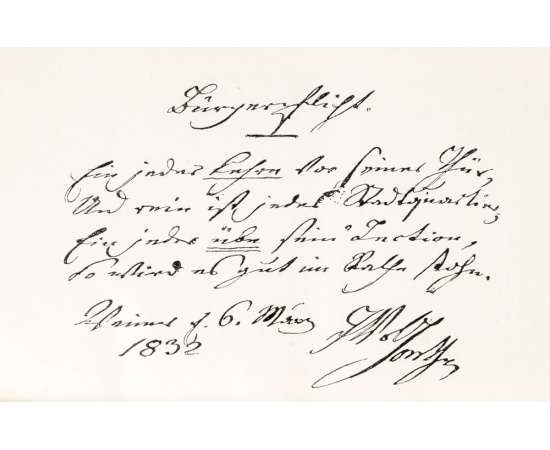 Bürgerpflicht.
Ein jeder kehre vor seiner Thür,
Und rein ist jedes Stadtquartier,
Ein jeder übe sein' Lection,
So wird es gut im Rathe stohn.
Weimar d. 6. März
1832
JWvGoethe